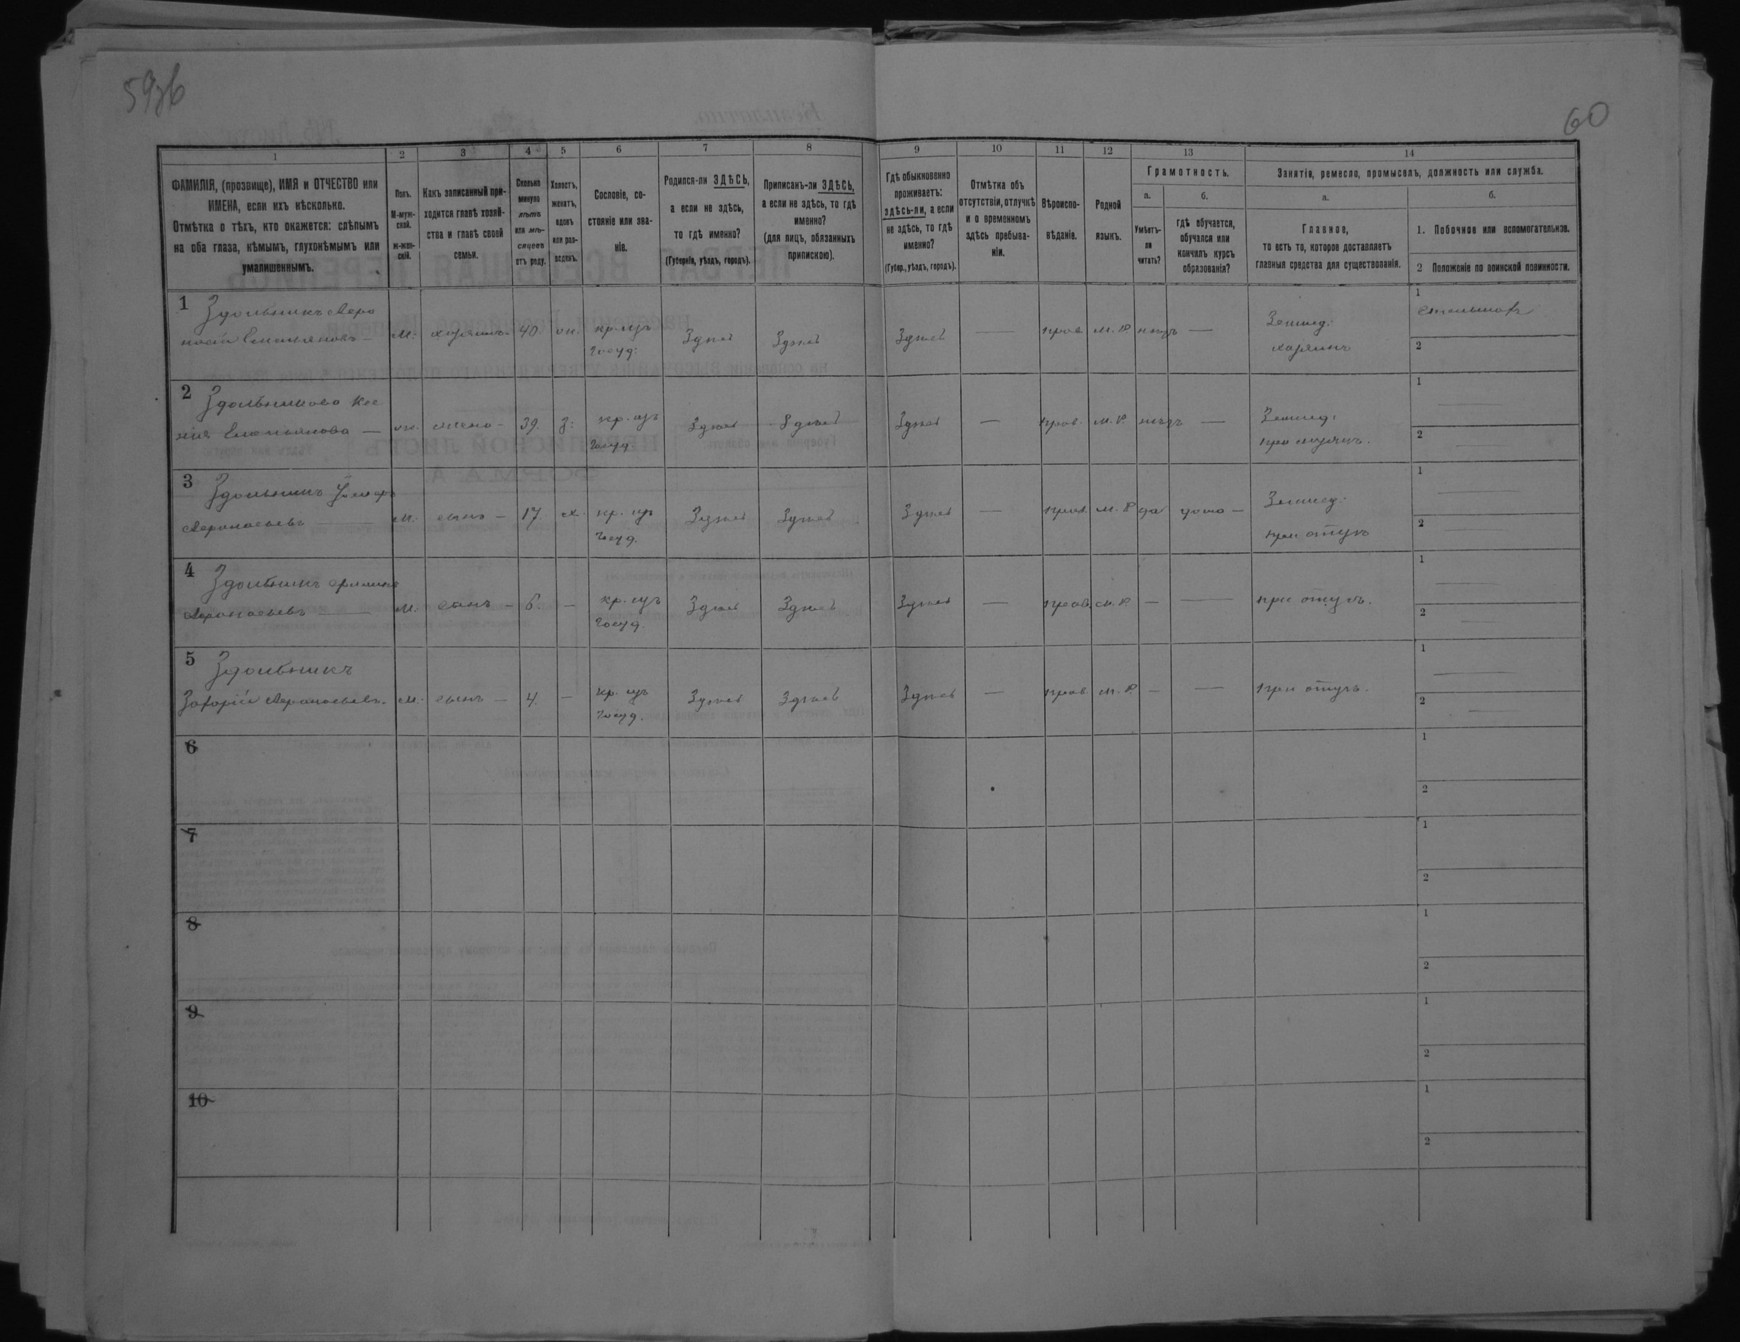 59об
60
1
2
3
4
5
6
7
8
9
10
11
12
13
14
ФАМИЛІЯ, (прозвище), ИМЯ и ОТЧЕСТВО или
ИМЕНА, если ихъ нѣсколько.
Отмѣтка о тѣхъ, кто окажется: слѣпымъ
на оба глаза, нѣмымъ, глухонѣмымъ или
умалишеннымъ.
Полъ.
М-муж-
ской.
ж-жен-
скій.
Какъ записанный при-
ходится главѣ хозяй-
ства и главѣ своей
семьи.
Сколько
минуло
лѣтъ
или мѣ-
сяцевъ
отъ роду.
Холостъ,
женатъ,
вдовъ
или раз-
веденъ.
Сословіе, со-
стояніе или зва-
ніе.
Родился-ли ЗДѢСЬ,
а если не здѣсь,
то гдѣ именно?
(Губернія, уѣздъ, городъ).
Приписанъ-ли ЗДѢСЬ,
а если не здѣсь, то гдѣ
именно?
(для лицъ, обязанныхъ
припискою).
Гдѣ обыкновенно
проживаетъ:
здѣсь-ли, а если
не здѣсь, то гдѣ
именно?
(Губер., уѣздъ, городъ).
Отмѣтка объ
отсутствіи, отлучкѣ
и о временномъ
здѣсь пребыва-
ніи.
Вѣроиспо-
вѣданіе.
Родной
языкъ.
Грамотность.
а.
Умѣетъ-
ли
читать?
б.
гдѣ обучается,
обучался или
кончилъ курсъ
образованія?
Занятіе, ремесло, промыселъ, должность или служба.
а.
Главное,
то есть то, которое доставляетъ
главныя средства для существованія.
б.
1. Побочное или вспомогательное.
2 Положеніе по воинской повинности.
1 Здольникъ Афа
насій Емельяновъ —
м. хозяинъ 40. кр. изъ
госуд. Здѣсь Здѣсь Здѣсь — прав. м. Р. нѣтъ —
Землед.
хозяинъ
1
2
2 Здольникова
Емельянова —
жена - 39. кр. изъ
госуд. Здѣсь Здѣсь Здѣсь — прав. м. Р. нѣтъ —
Землед.
при мужѣ.
1
2
3 Здольникъ
Афанасьевъ —
м. сынъ — 17 х. кр. изъ
госуд. Здѣсь Здѣсь Здѣсь — прав. м. Р. да дома —
Землед.
при отцѣ
1
2
4 Здольникъ
Афанасьевъ —
м. сынъ — 6. — кр. изъ
госуд. Здѣсь Здѣсь Здѣсь — прав. м. Р. — —
при отцѣ.
1
2
5 Здольникъ
Захарій Афанасьевъ.
м. сынъ — 4 — кр. изъ
госуд. Здѣсь Здѣсь Здѣсь — прав. м. Р. — —
при отцѣ.
1
2
6
1
2
7
1
2
8
1
2
9
1
2
10
1
2